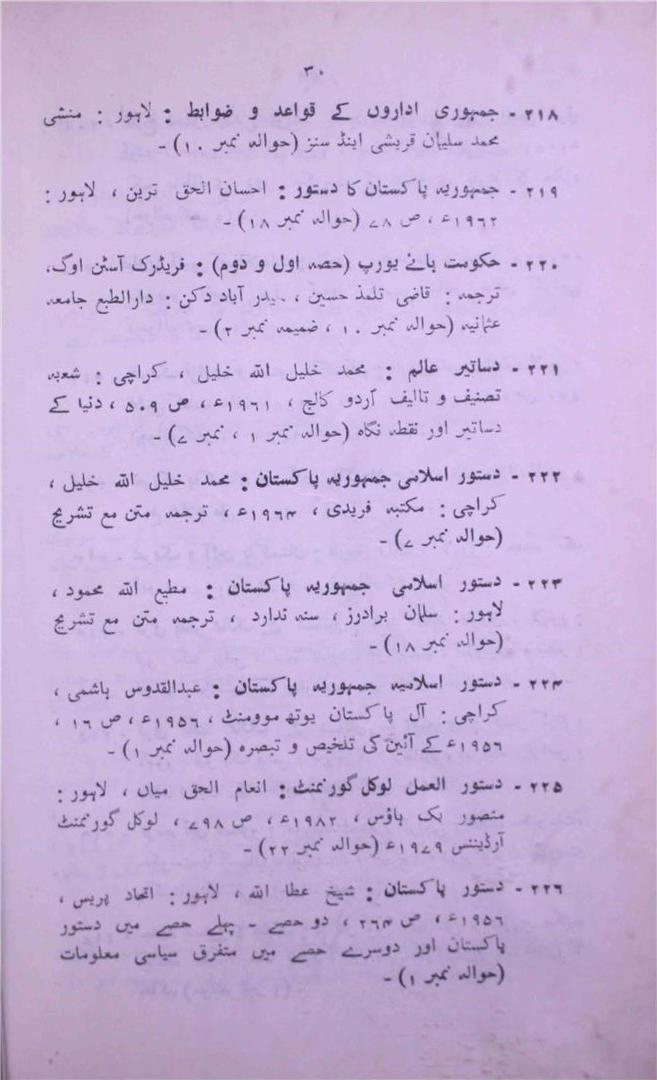 ۳۰
۲۱۸ - جمہوری اداروں کے قواعد و ضوابط : لاہور : منشی
محمد سلیمان قریشی اینڈ سنز (حوالہ نمبر ۱۰) -
۲۱۹ - جمہوریہ پاکستان کا دستور : احسان الحق ترین ، لاہور :
۱۹۶۲ء ، ص ۷۸ (حوالہ نمبر ۱۸) -
۲۲۰ - حکومت ہائے یورپ (حصہ اول و دوم) : فریڈرک آسٹن اوگ،
ترجمہ : قاضی تلمذ حسین ، حیدر آباد دکن : دارالطبع جامعہ
عثمانیہ (حوالہ نمبر ۱۰ ، ضمیمہ نمبر ۲) -
۲۲۱ - دساتیر عالم : محمد خلیل اللہ خلیل ، کراچی : شعبہ
تصنیف و تالیف اردو کالج ، ۱۹۶۱ء ، ص ۵۰۹ ، دنیا کے
دساتیر اور نقطہ نگاہ (حوالہ نمبر ۱ ، نمبر ۷) -
۲۲۲ - دستور اسلامی جمہوریہ پاکستان : محمد خلیل اللہ خلیل ،
کراچی : مکتبہ فریدی ، ۱۹۶۴ء ، ترجمہ متن مع تشریح
(حوالہ نمبر ۷) -
۲۲۳ - دستور اسلامی جمہوریہ پاکستان : مطیع اللہ محمود ،
لاہور : سلمان برادرز ، سنہ ندارد ، ترجمہ متن مع تشریح
(حوالہ نمبر ۱۸) -
۲۲۴ - دستور اسلامیہ جمہوریہ پاکستان : عبدالقدوس ہاشمی ،
کراچی : آل پاکستان یوتھ موومنٹ ، ۱۹۵۶ء ، ص ۱۶ ،
۱۹۵۶ء کے آئین کی تلخیص و تبصرہ (حوالہ نمبر ۱) -
۲۲۵ - دستور العمل لوکل گورنمنٹ : انعام الحق میاں ، لاہور :
منصور بک ہاؤس ، ۱۹۸۲ء ، ص ۷۹۸ ، لوکل گورنمنٹ
آرڈیننس ۱۹۷۹ء (حوالہ نمبر ۲۲) -
۲۲۶ - دستور پاکستان : شیخ عطا اللہ ، لاہور : اتحاد پریس ،
۱۹۵۶ء ، ص ۲۶۴ ، دو حصے - پہلے حصے میں دستور
پاکستان اور دوسرے حصے میں متفرق سیاسی معلومات
(حوالہ نمبر ۱) -